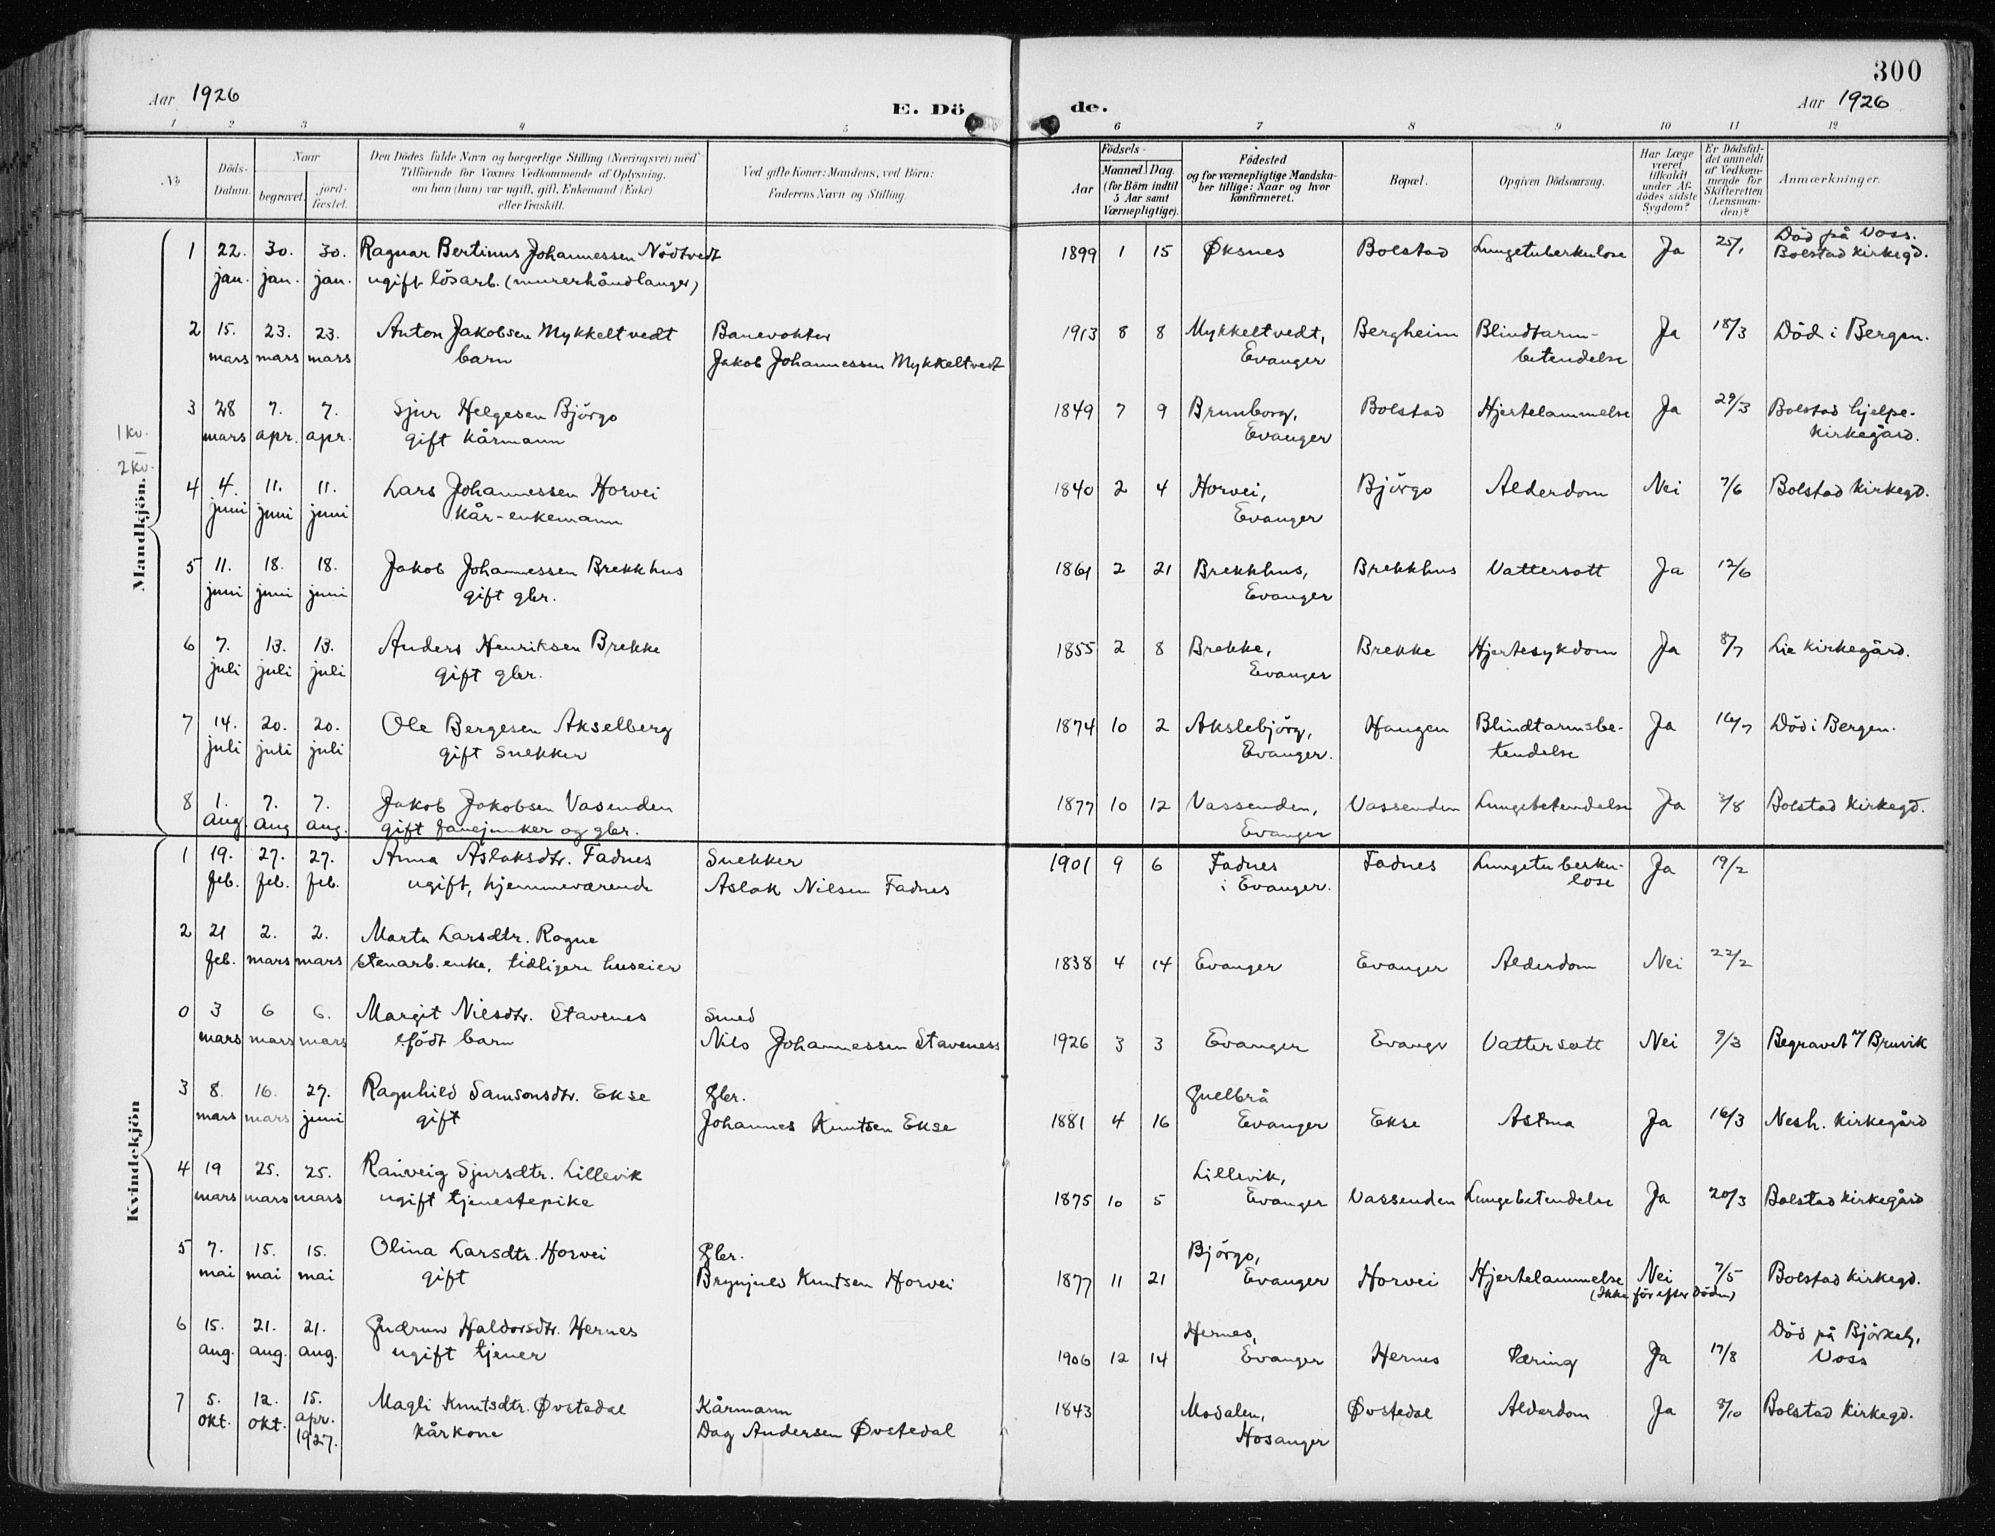 300
Aar 1926
E. Dö de.
Aar 1926
1 2 3 4 5 6 7 8 9 10 11 12
No
Döds-Datum.
Naar
begravet. jord-fæstet.
Den Dödes fulde Navn og borgerlige Stilling (Næringsvei) med
Tilföiende for Voxnes Vedkommende af Oplysning,
om han (hun) var ugift, gift, Enkemand (Enke)
eller fraskilt.
Ved gifte Koner: Mandens, ved Börn:
Faderens Navn og Stilling.
Födsels-
Aar
Maaned. Dag.
(for Börn indtil
5 Aar samt
Værnepligtige).
Födested
og for værnepligtige Mandska-
ber tillige: Naar og hvor
konfirmeret.
Bopæl.
Opgiven Dödsaarsag.
Har Læge
været
tilkaldt
under Af-
dödes sidste
Sygdom?
Er Dödsfal-
det anmeldt
af Vedkom-
mende for
Skifteretten
(Lensman-
den)?
Anmærkninger.
Mandkjön.
1 kv.
2 kv.
1 22. jan. 30. jan. 30. jan. Ragnar Bertinus Johannessen Nödtvedt 1899 1 15 Øksnes Bolstad Lungetuberkulose Ja 25/1 Död på Voss.
ugift lösarb. (murerhåndlanger) Bolstad kirkegd.
2 15. mars 23. mars 23. mars Anton Jakobsen Mykkeltvedt Banevokter 1913 8 8 Mykkeltvedt, Bergheim Blindtarm- Ja 18/3 Död i Bergen.
barn Jakob Johannessen Mykkeltvedt Evanger betendelse
3 28 mars 7. apr. 7. apr. Sjur Helgesen Björgo 1849 7 9 Brunborg, Bolstad Hjertelammelse Ja 29/3 Bolstad hjelpe-
gift kårmann Evanger kirkegård.
4 4. juni 11. juni 11. juni Lars Johannessen Horvei 1840 2 4 Horvei, Björgo Alderdom Nei 7/6 Bolstad kirkegd.
kår-enkemann Evanger
5 11. juni 18. juni 18. juni Jakob Johannessen Brekkhus 1861 2 21 Brekkhus, Brekkhus Vattersott Ja 12/6
gift gbr. Evanger
6 7. juli 13. juli 13. juli Anders Henriksen Brekke 1855 2 8 Brekke, Brekke Hjertesykdom Ja 8/7 Lie kirkegård.
gift gbr. Evanger
7 14. juli 20. juli 20. juli Ole Bergesen Akselberg 1874 10 2 Akslebjörg, Haugen Blindtarmsbe- Ja 16/7 Död i Bergen.
gift snekker Evanger. tendelse
8 1. aug. 7. aug 7. aug. Jakob Jakobsen Vasenden 1877 10 12 Vassenden, Vassenden Lungebetendelse Ja /8 Bolstad kirkegd.
gift fanejunker og gbr. Evanger
Kvindekjön
1 19. feb. 27. feb. 27. feb. Anna Aslaksdtr. Fadnes Snekker 1901 9 6 Fadnes Fadnes Lungetuberku- Ja 19/2
ugift, hjemmeværende Aslak Nilsen Fadnes i Evanger. lose
2 21 feb. 2. mars 2. mars Marta Larsdtr. Rogne
stenarb.enke, tidligere huseier 1838 4 14 Evanger Evanger Alderdom Nei 22/2
0 3 mars 6 mars 6. mars Margit Nilsdtr. Stavenes Smed
födt barn Nils Johannessen Staveness 1926 3 3 Evanger Evangr Vattersott Nei 9/3 Begravet Bruvik
3 8. mars 16. mars 27. juni Ragnhild Samsonsdtr. Ekse Gbr.
gift Johannes Knutsen Ekse 1881 4 16 Gullbrå Evanger Ekse Astma Ja 16/3 Nesh. kirkegård
4 19 mars 25. mars 25. mars Ranveig Sjursdtr. Lillevik Lillevik,
ugift tjenestepike 1875 10 5 Evanger Vassenden Lungebetendelse Ja 20/3 Bolstad kirkegård
5 7. mai 15. mai 15. mai Olina Larsdtr. Horvei Gbr. Björgo,
gift Brynjulv Knutsen Horvei 1877 11 21 Evanger Horvei Hjertelammelse Nei 7/5 Bolstad kirkegd.
(Ikke för efter döden)
6 15. aug. 21. aug. 21. aug. Gudrun Haldorsdtr. Hernes Hernes, Död på Björkely,
ugift tjener 1906 12 14 Evanger Hernes Tæring Ja 17/8 Voss
7 5. okt. 12. okt. 15. apr. 1927. Magli Knutsdtr. Øvstedal Kårmann 1843 Modalen, Øvstedal Alderdom Ja 8/10 Bolstad kirkegd.
kårkone Dag Andersen Øvstedal Hosanger